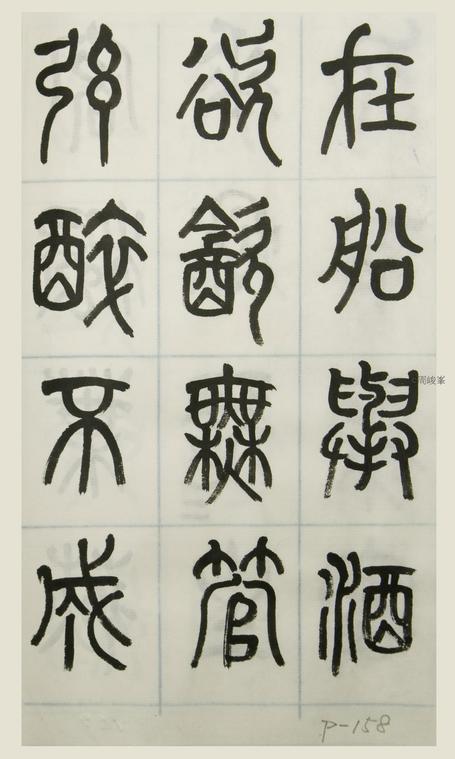 在船舉酒
欲飲無管
弦醉不成
周峻峯
P-158